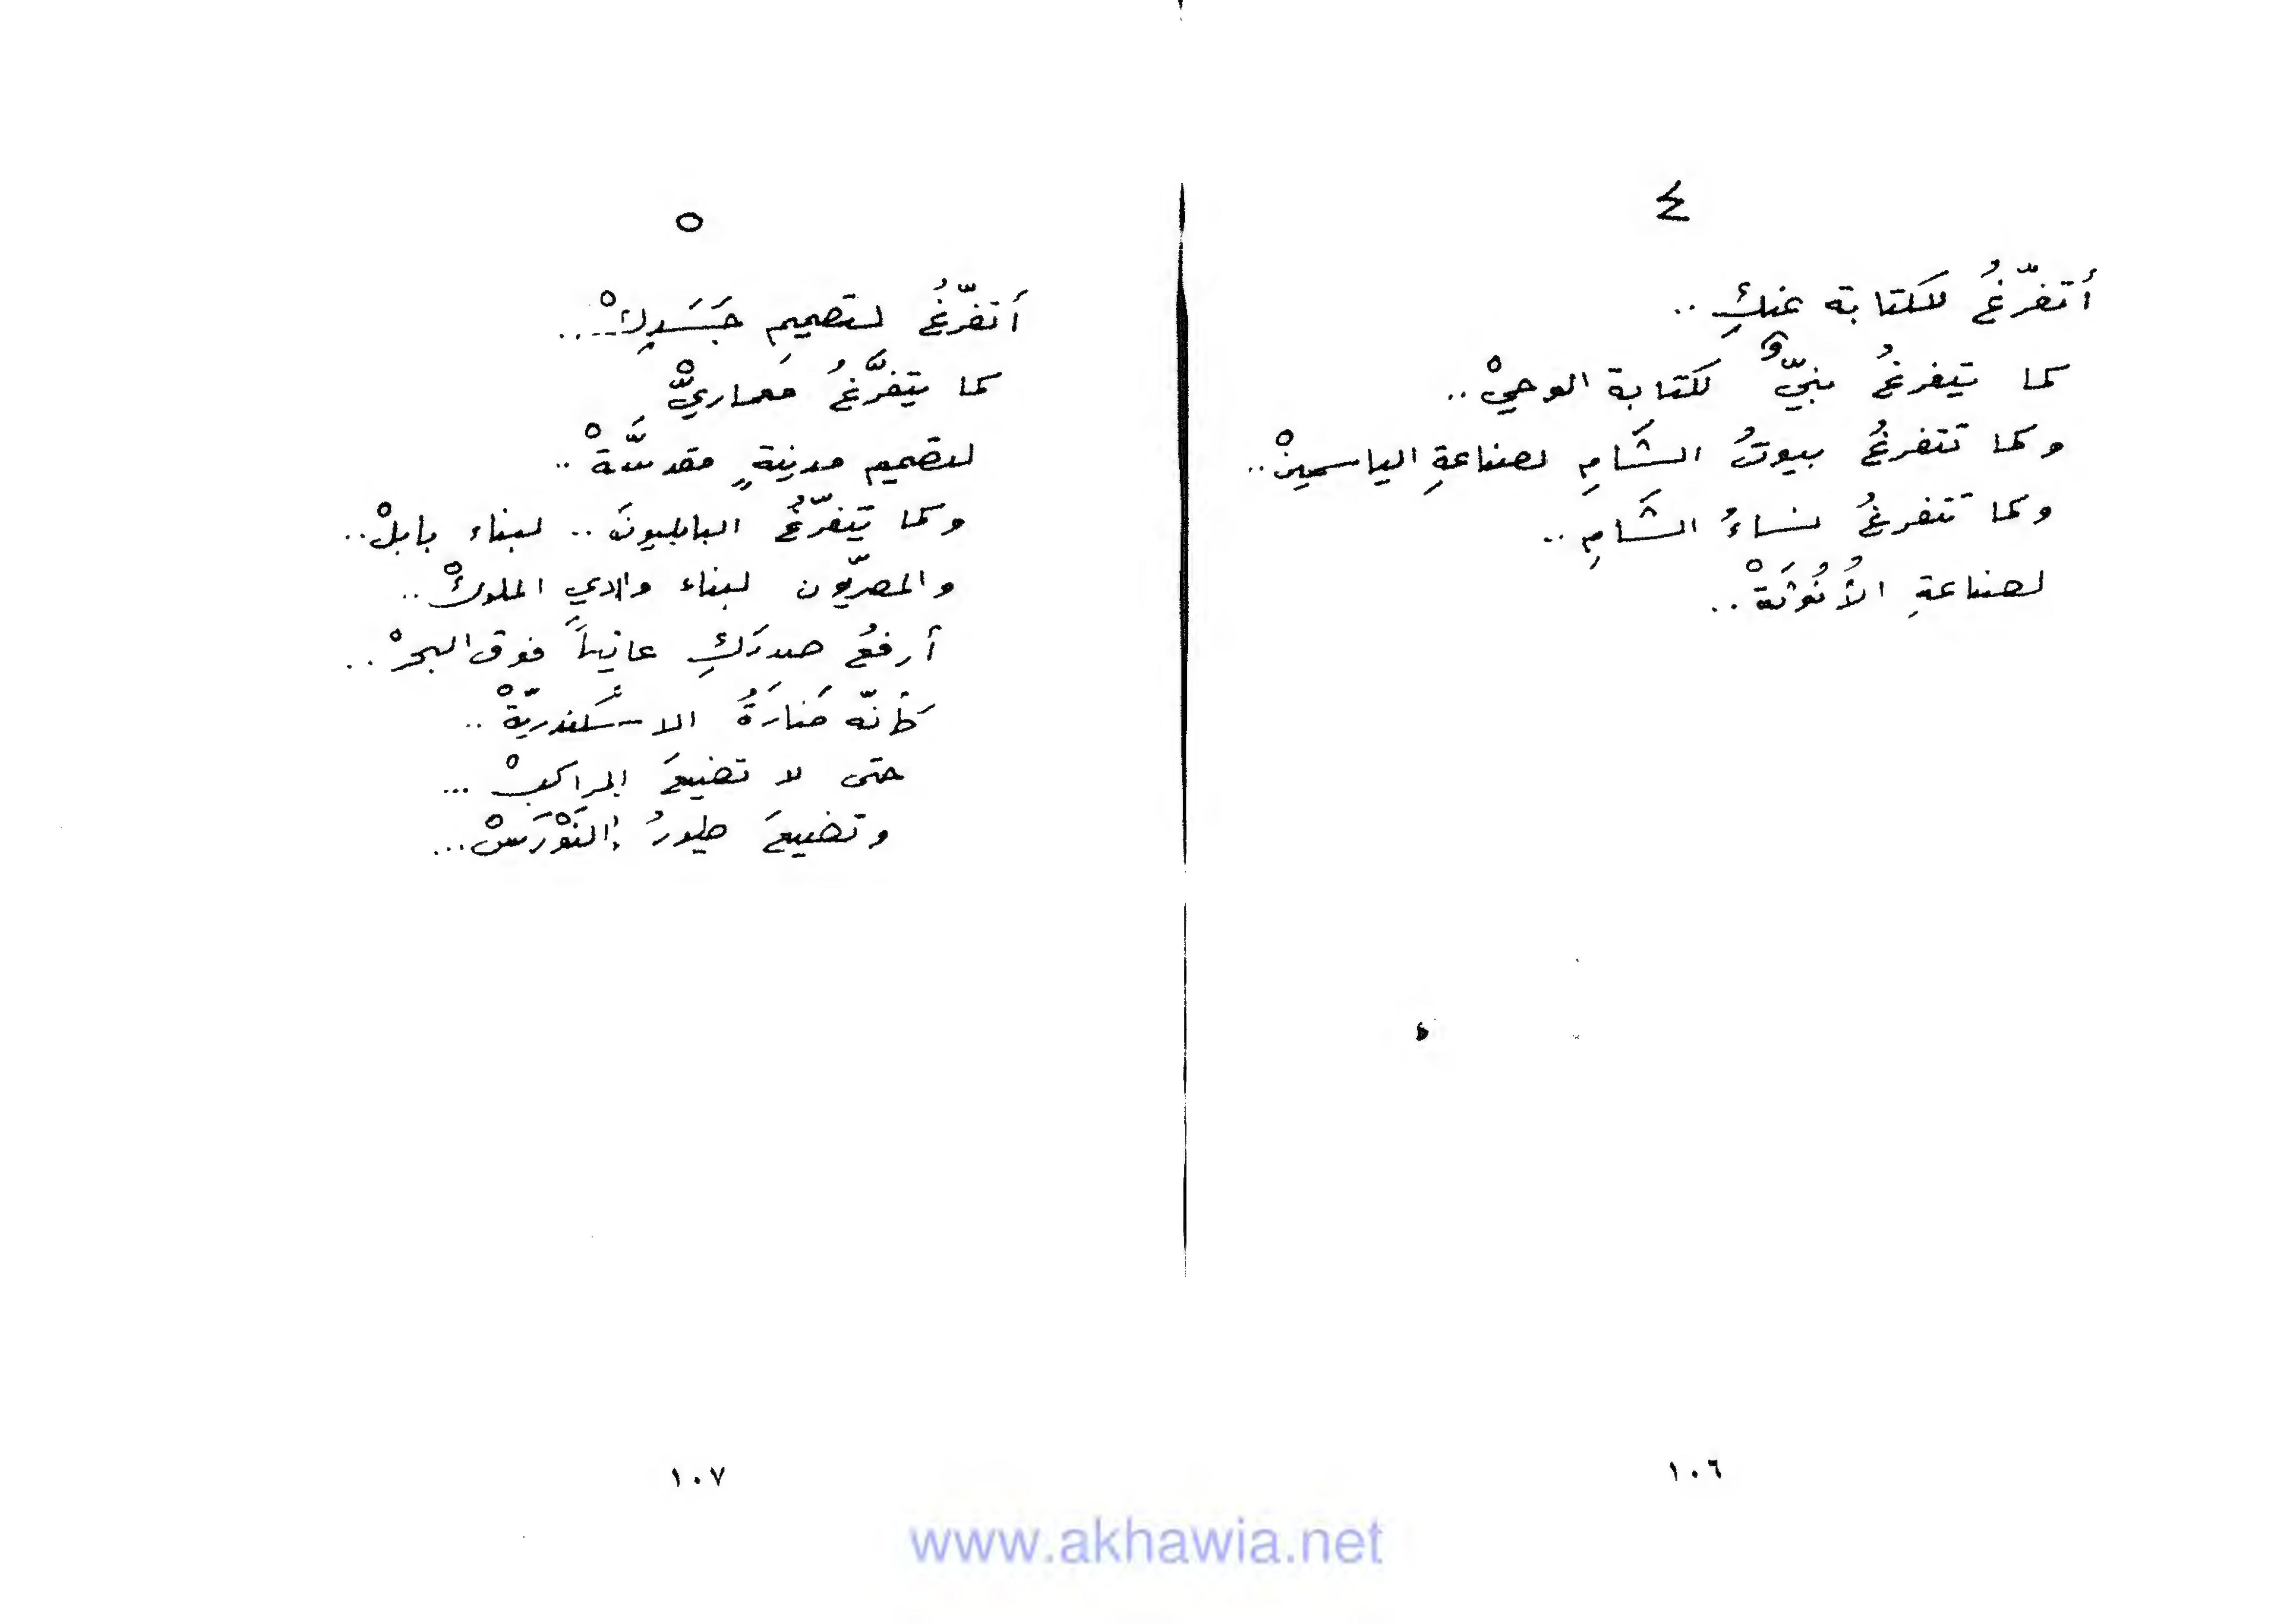 ٤
أتفرّغُ للكتابة عنكِ ..
كما يتفرغُ نبيٌّ لكتابة الوحيْ ..
وكما تتفرغُ بيوتُ الشَّامِ لصناعةِ الياسمينْ ..
وكما تتفرغُ نساءُ الشَّامِ ..
لصناعةِ الأُنُوثَةْ ..
١٠٦
٥
أتفرّغُ لتصميمِ جَسَدِكْ ...
كما يتفرَّغُ معماريّْ
لتصميم مدينةٍ مقدسَّةْ ..
وكما يتفرّغُ البابليونَ .. لبناء بابلْ ..
والمصريّون لبناء وادي الملوكْ ..
أرفعُ صدرَكِ عالياً فوق البحرْ ..
كأنّه مَنارَةُ الاسكندريّةْ ..
حتى لا تضيعَ المراكبْ ...
وتضيعَ طيورُ النَوْرَسْ ...
١٠٧
www.akhawia.net